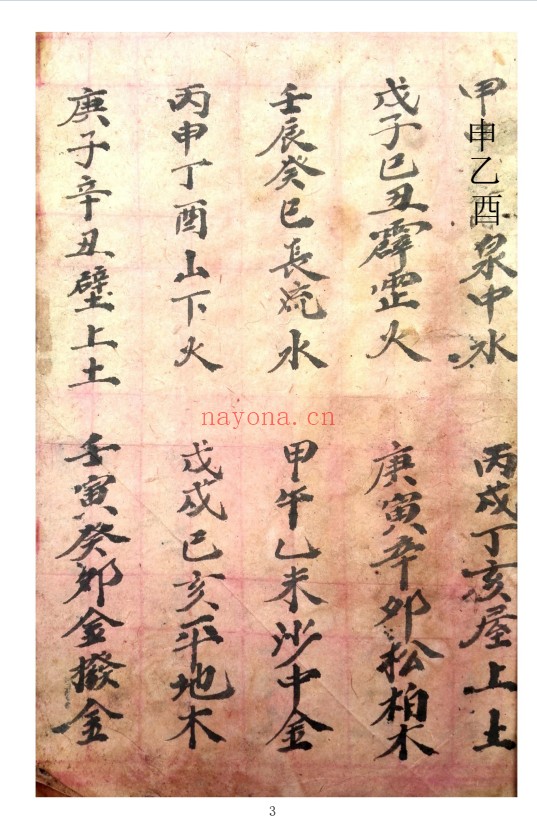 甲申乙酉泉中水
丙戌丁亥屋上土
戊子己丑霹雳火
庚寅辛卯松柏木
壬辰癸巳長流水
甲午乙未沙中金
丙申丁酉山下火
戊戌己亥平地木
庚子辛丑壁上土
壬寅癸卯金撥金
nayona.cn
3